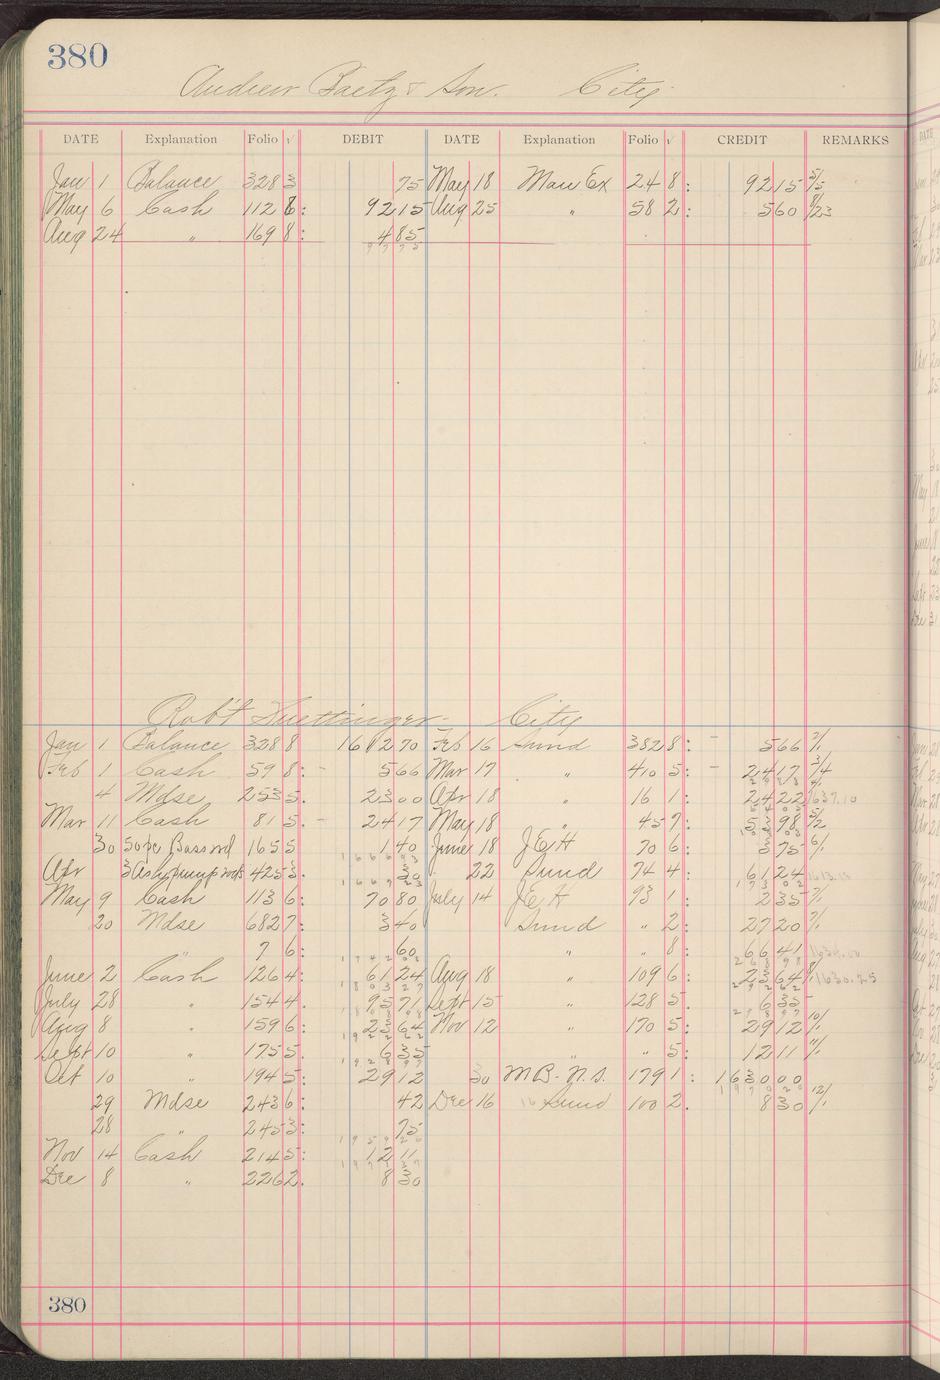 380
Andrew Baetz & Son. City
DATE Explanation Folio √ DEBIT DATE Explanation Folio √ CREDIT REMARKS
Jan 1 Balance 328 3 75 May 18 Man Ex 24 8: 92 15 5/5
May 6 Cash 112 8: 92 15 Aug 25 " 58 2: 5 60 8/23
Aug 24 " 169 8: 4 85
97 75
Rob't Huettinger City
Jan 1 Balance 328 8 1612 70 Feb 16 Sund 382 8: 5 66 2/1
Feb 1 Cash 59 8: 5 66 Mar 17 " 410 5: 24 17 3/4
4 Mdse 253 5. 23 00 Apr 18 " 16 1: 24 22 1637.10
Mar 11 Cash 81 5. 24 17 May 18 " 45 7: 5 98 5/2
30 50pc Basswd 165 5 1 40 June 18 J.E.H 70 6: 3 75 6/1
Apr 3 Ash pump rods 425 3. 30 22 Sund 74 4: 61 24
May 9 Cash 113 6: 70 80 July 14 J.E.H 93 1: 2 35 7/1
20 Mdse 682 7: 3 40 Sund " 2: 27 20 7/1
" 7 6: 60 " " 8: 66 41
June 2 Cash 126 4: 61 24 Aug 18 " 109 6: 23 64 8/1 1630.25
July 28 " 154 4. 95 71 Sept 15 " 128 5. 6 35
Aug 8 " 159 6: 23 64 Nov 12 " 170 5: 29 12 10/1
Sept 10 " 175 5. 6 35 " " 5: 12 11 11/1
Oct 10 " 194 5: 29 12 30 M.B. N.S. 179 1: 1630 00
29 Mdse 243 6: 42 Dec 16 Sund 100 2. 8 30 12/1
28 " 245 3: 75
Nov 14 Cash 214 5: 12 11
Dec 8 " 226 2. 8 30
380